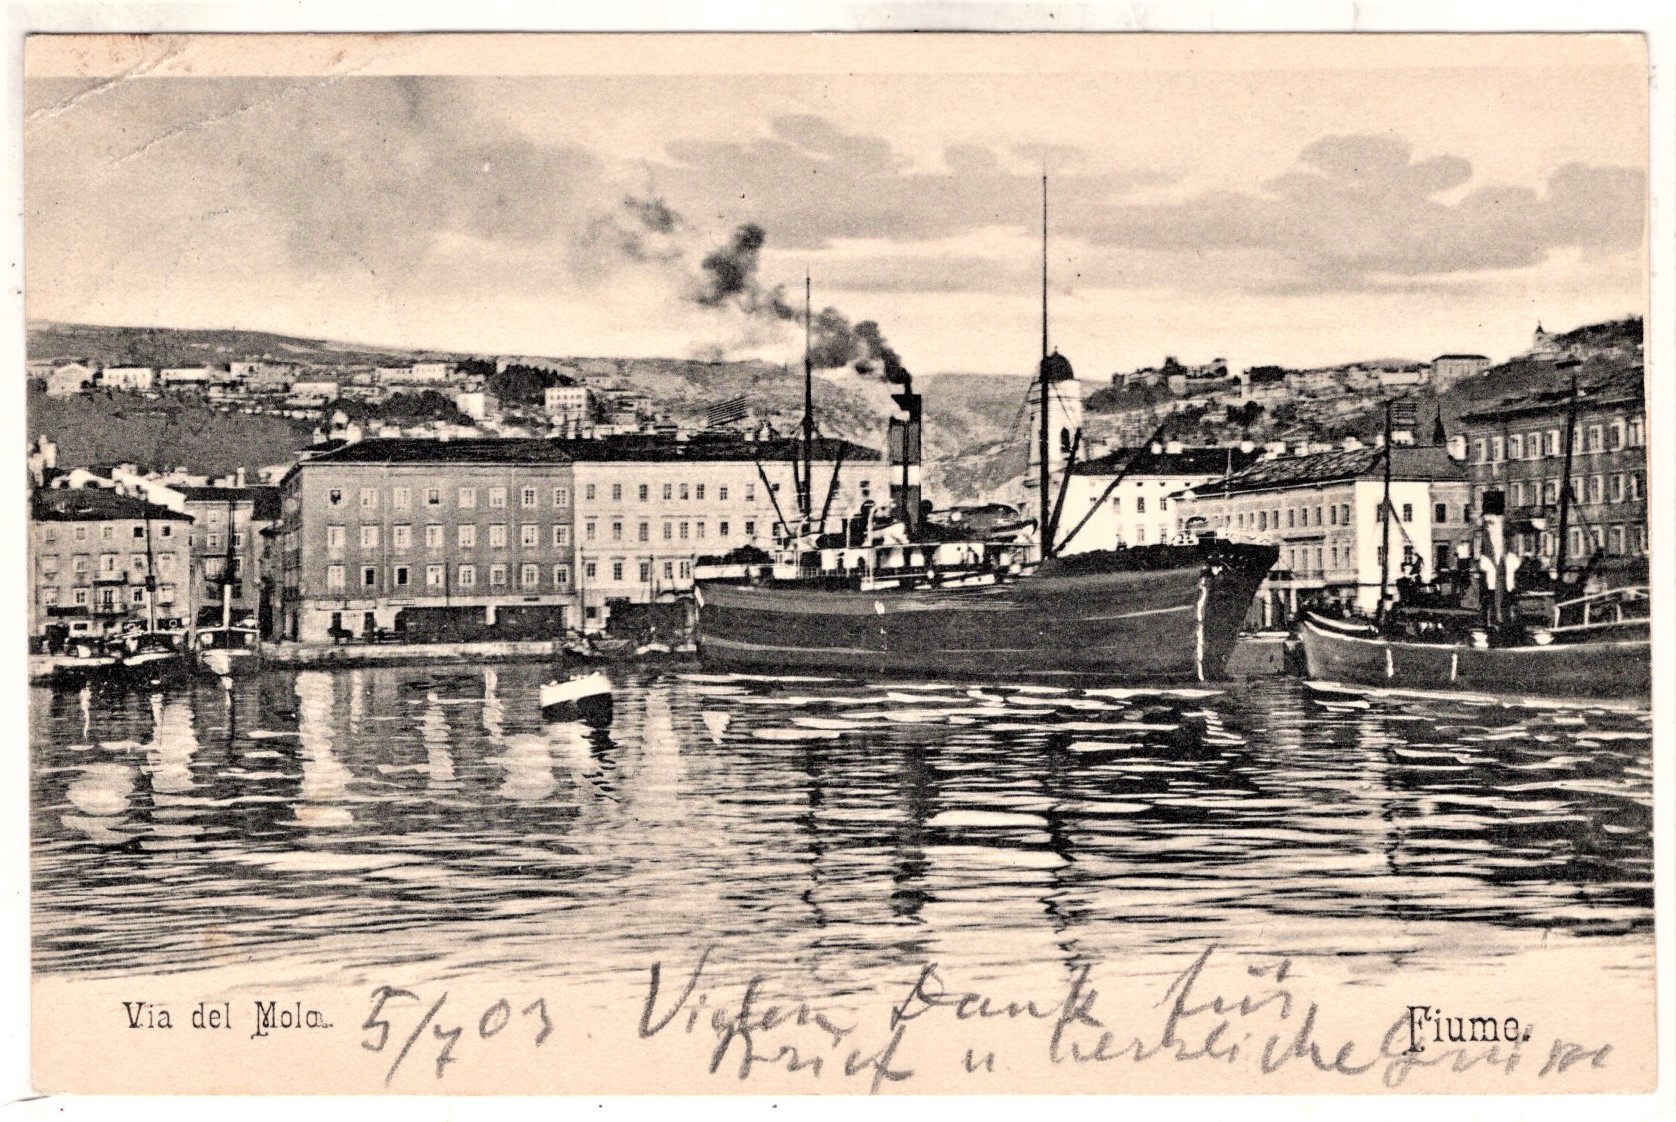 Via del Molo.
Fiume.
5/7 03. Vielen Dank für
Brief u herzliche Grüsse